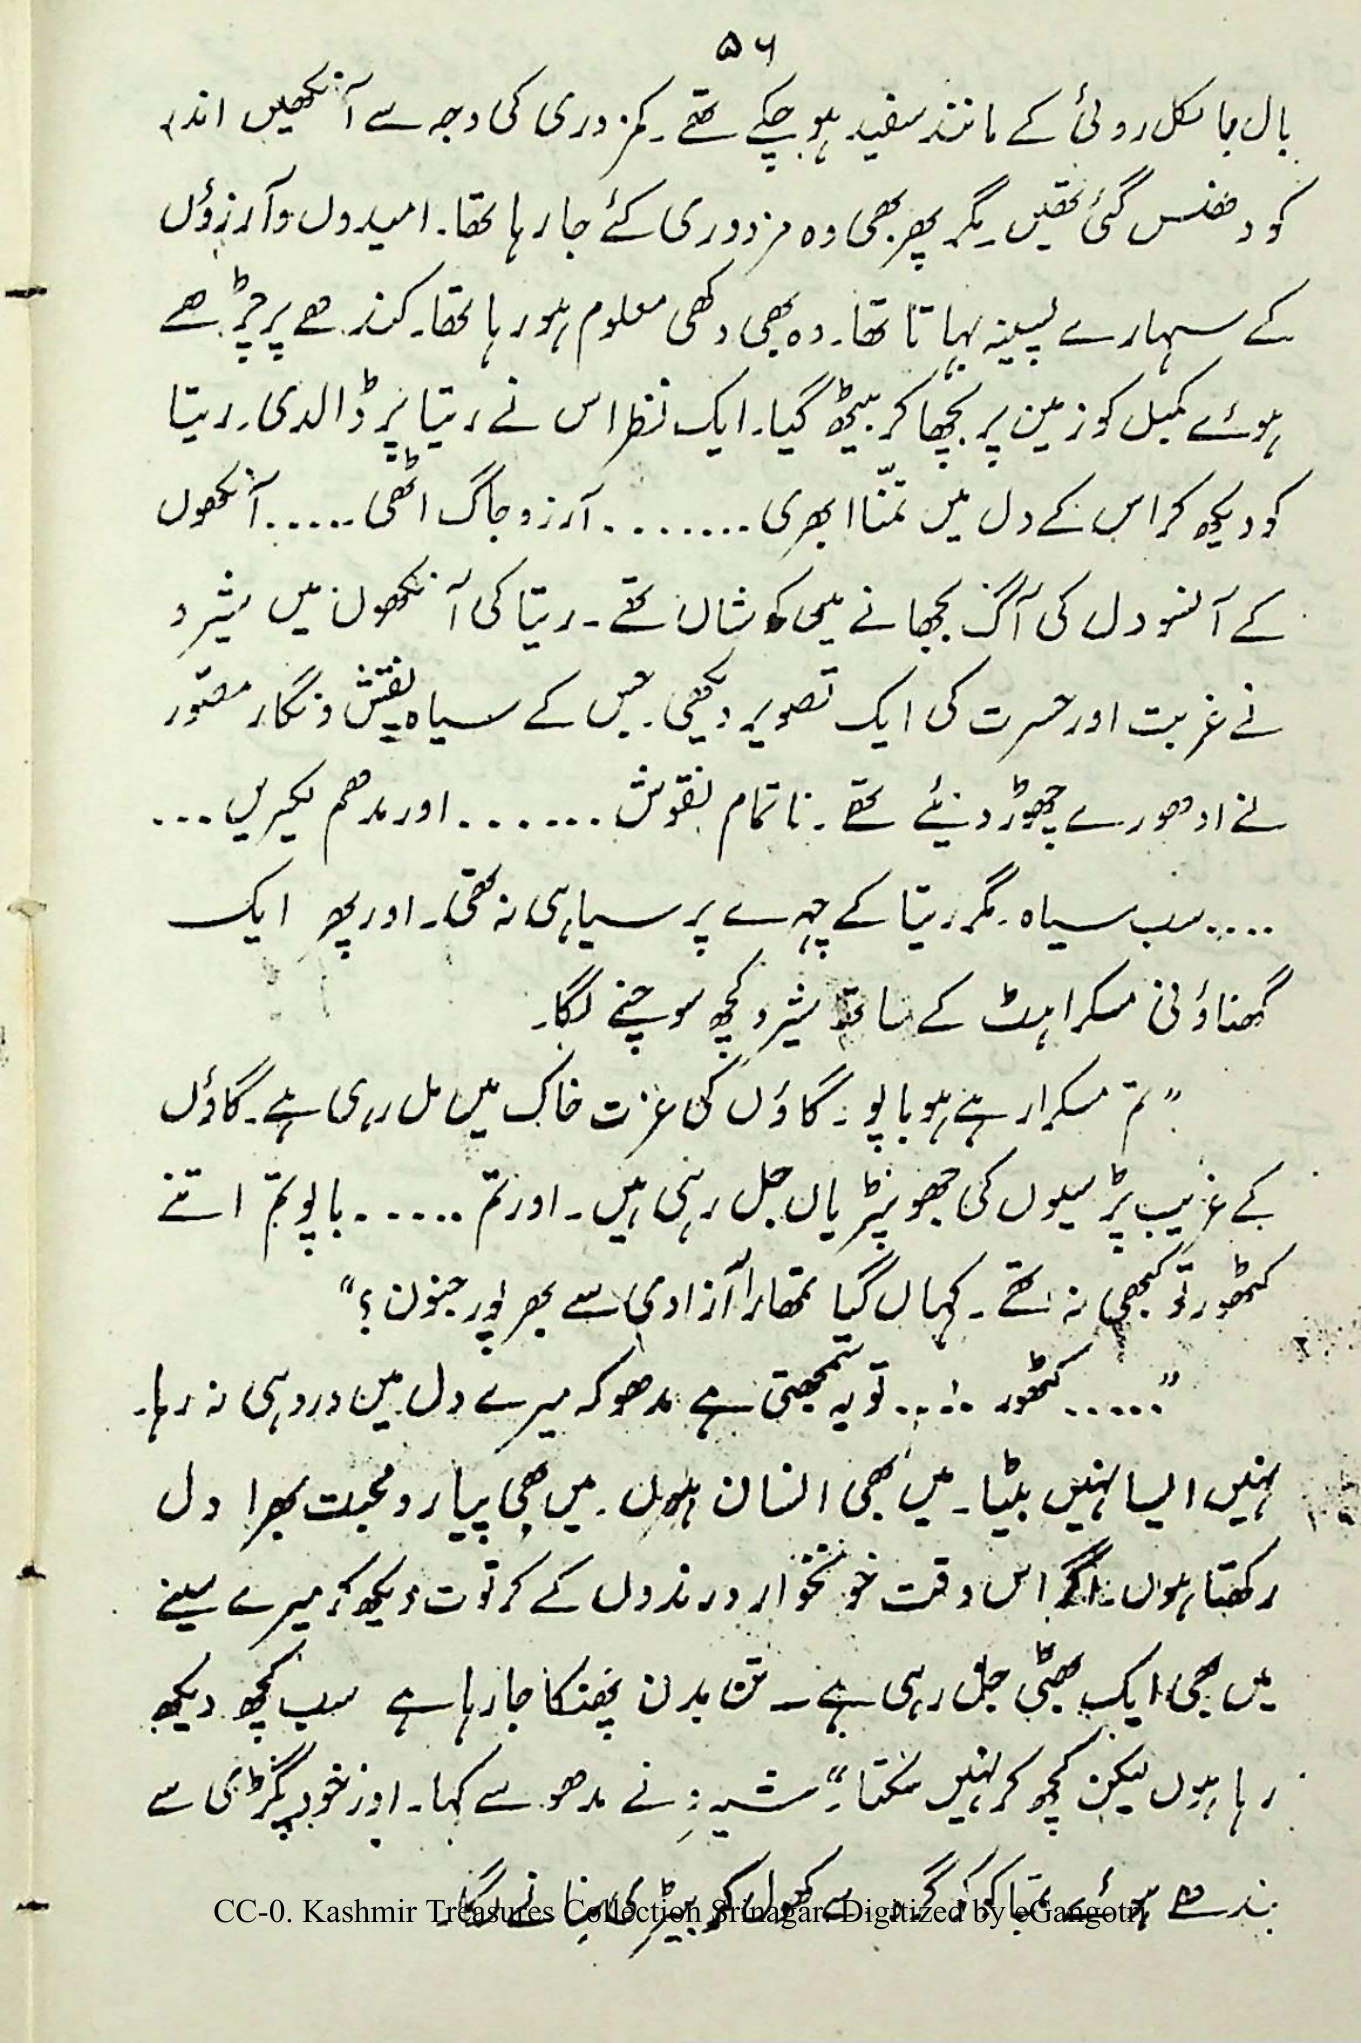 ۵۶
بال بالکل روئی کے مانند سفید ہو چکے تھے۔ کمزوری کی وجہ سے آنکھیں اندر
کو دھنس گئی تھیں۔ مگر پھر بھی وہ مزدوری کئے جا رہا تھا۔ امیدوں و آرزوؤں
کے سہارے پسینہ بہاتا تھا۔ وہ بھی دکھی معلوم ہو رہا تھا۔ کندھے پر چڑھے
ہوئے کمبل کو زمین پر بچھا کر بیٹھ گیا۔ ایک نظر اس نے ریتا پر ڈالدی۔ ریتا
کو دیکھ کر اس کے دل میں تمنّا ابھری ........ آرزو جاگ اٹھی ..... آنکھوں
کے آنسو دل کی آگ بجھانے میں کوشاں تھے۔ ریتا کی آنکھوں میں شیرو
نے غربت اور حسرت کی ایک تصویر دیکھی۔ جس کے سیاہ نقش و نگار مصّور
نے ادھورے چھوڑ دئیے تھے۔ ناتمام نقوش ....... اور مدھم لکیریں ...
.... سب سیاہ۔ مگر ریتا کے چہرے پر سیاہی نہ تھی۔ اور پھر ایک
گھناؤنی مسکراہٹ کے ساتھ شیرو کچھ سوچنے لگا۔
”تم مسکرا رہے ہو باپو۔ گاؤں کی عزت خاک میں مل رہی ہے۔ گاؤں
کے غریب پڑسیوں کی جھونپڑیاں جل رہی ہیں۔ اور تم ..... باپو تم اتنے
کٹھور تو کبھی نہ تھے۔ کہاں گیا تمھارا آزادی سے بھر پور جنون؟“
”..... کٹھور .... تو یہ سمجھتی ہے مدھو کہ میرے دل میں درد ہی نہ رہا۔
نہیں ایسا نہیں بٹیا۔ میں بھی انسان ہوں۔ میں بھی پیار و محبت بھرا دل
رکھتا ہوں۔ مگر اس وقت خونخوار درندوں کے کرتوت دیکھ کر میرے سینے
میں بھی ایک بھٹی جل رہی ہے۔ تن بدن پھنکا جا رہا ہے سب کچھ دیکھ
رہا ہوں لیکن کچھ کر نہیں سکتا۔“ شیرو نے مدھو سے کہا۔ اور خود پگڑی سے
بندھے ہوئے تمباکو کو گرہ سے کھول کر بیڑی بنانے لگا۔
CC-0. Kashmir Treasures Collection Srinagar. Digitized by eGangotri